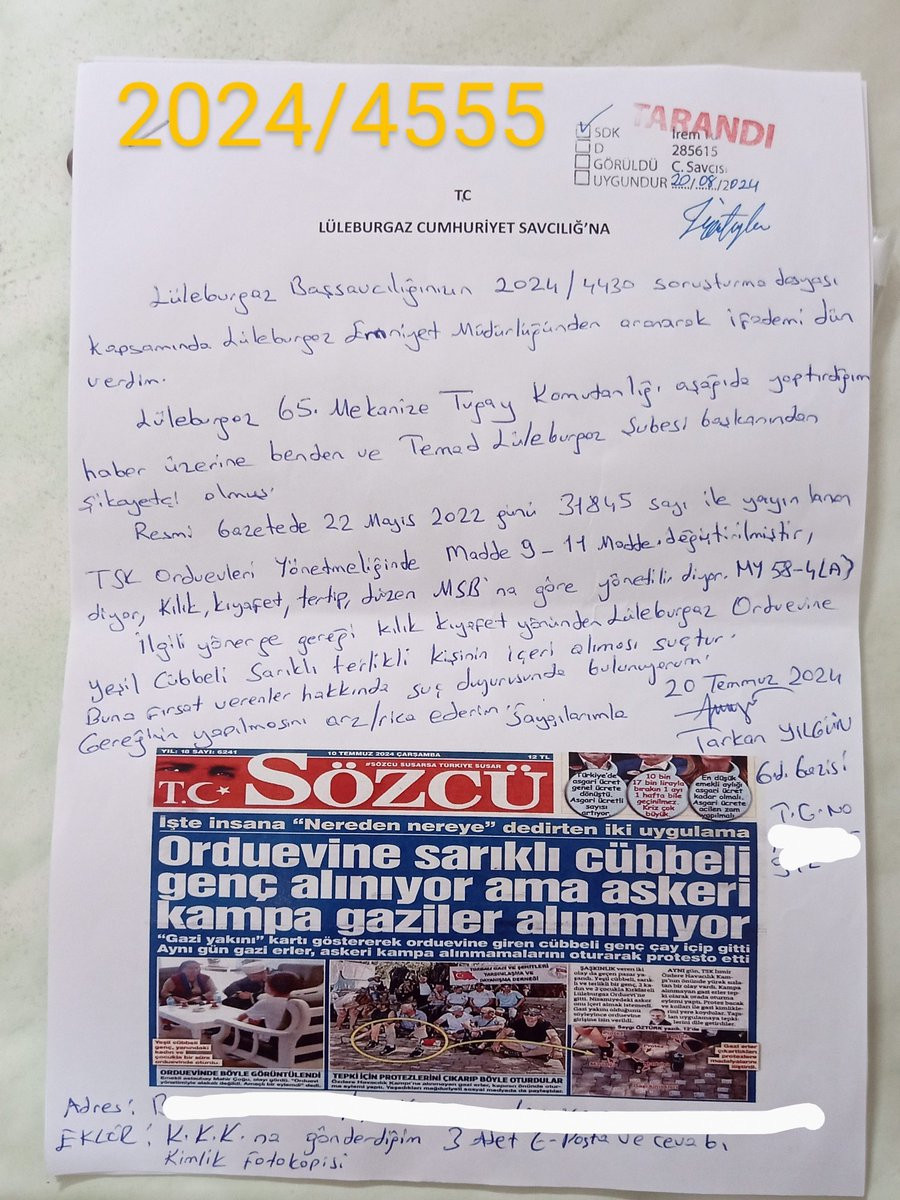 2024/4555
TARANDI
SDK İrem
D 285615
GÖRÜLDÜ C. Savcıs
UYGUNDUR 20/08/2024
T.C
LÜLEBURGAZ CUMHURİYET SAVCILIĞ'NA
Lüleburgaz Başsavcılığınızın 2024/4430 soruşturma dosyası
kapsamında Lüleburgaz Emniyet Müdürlüğünden aranarak ifademi dün
verdim.
Lüleburgaz 65. Mekanize Tugay Komutanlığı aşağıda yaptırdığım
haber üzerine benden ve Temad Lüleburgaz Şubesi başkanından
şikayetçi olmuş.
Resmi Gazetede 22 Mayıs 2022 günü 31845 sayı ile yayınlanan
TSK Orduevleri Yönetmeliğinde Madde 9-11 Madde.değiştirilmiştir,
diyor, Kılık, kıyafet, tertip, düzen MSB'na göre yönetilir diyor. MY 58-4(A)
İlgili yönerge gereği kılık kıyafet yönünden Lüleburgaz Orduevine
Yeşil Cübbeli Sarıklı terlikli kişinin içeri alıması suçtur.
Buna fırsat verenler hakkında suç duyurusunda bulunuyorum.
Gereğinin yapılmasını arz/rica ederim. Saygılarımla
20 Temmuz 2024
Tarkan YILGÜN
Gazisi
T.C. NO
YIL: 18 SAYI: 6241
10 TEMMUZ 2024 ÇARŞAMBA
12 TL
#SÖZCÜ SUSARSA TÜRKİYE SUSAR
T.C SÖZCÜ
Türkiye'de asgari ücret genel ücrete dönüştü. Asgari ücretli sayısı artıyor
10 bin 17 bin lirayla bırakın 1 ayı 1 hafta bile geçinilmez. Kriz çok büyük.
En düşük emekli aylığı asgari ücret kadar olmalı. Asgari ücrete acilen zam yapılmalı
İşte insana "Nereden nereye" dedirten iki uygulama
Orduevine sarıklı cübbeli
genç alınıyor ama askeri
kampa gaziler alınmıyor
"Gazi yakını" kartı göstererek orduevine giren cübbeli genç çay içip gitti
Aynı gün gazi erler, askeri kampa alınmamalarını oturarak protesto etti
ORDUEVİNDE BÖYLE GÖRÜNTÜLENDİ
TEPKİ İÇİN PROTEZLERİNİ ÇIKARIP BÖYLE OTURDULAR
Adres:
EKLER: K.K.K.na gönderdiğim 3 Adet E-Posta ve cevabı,
Kimlik fotokopisi